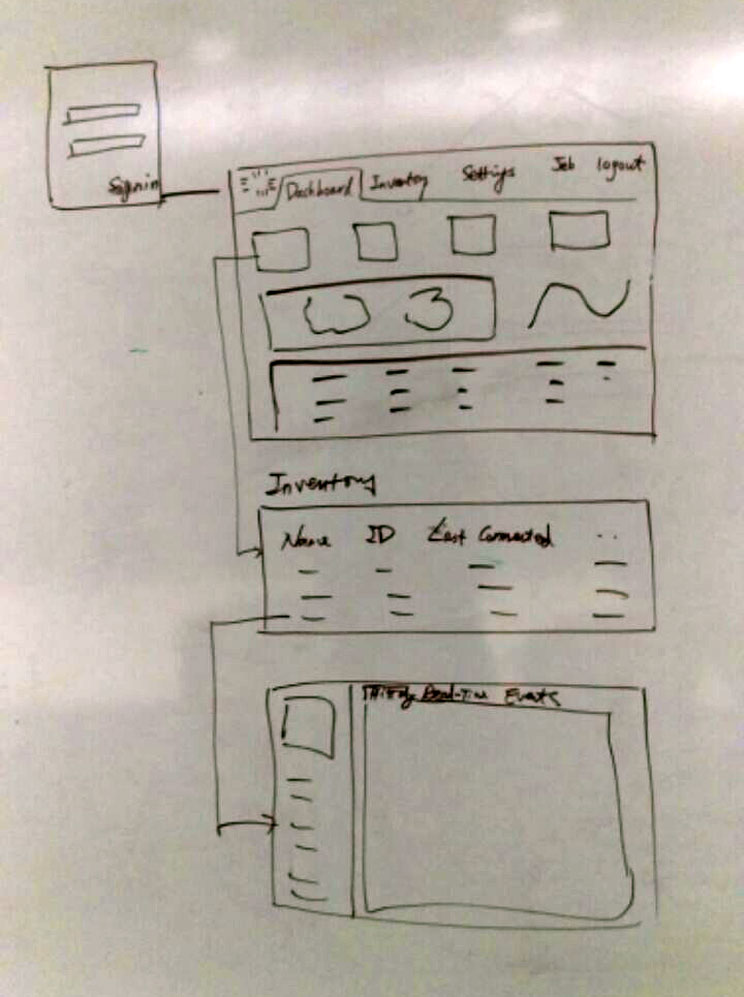 Signin
Dashboard Inventory Settings Job logout
Inventory
Name ID Last Connected ..
Real-Time Events